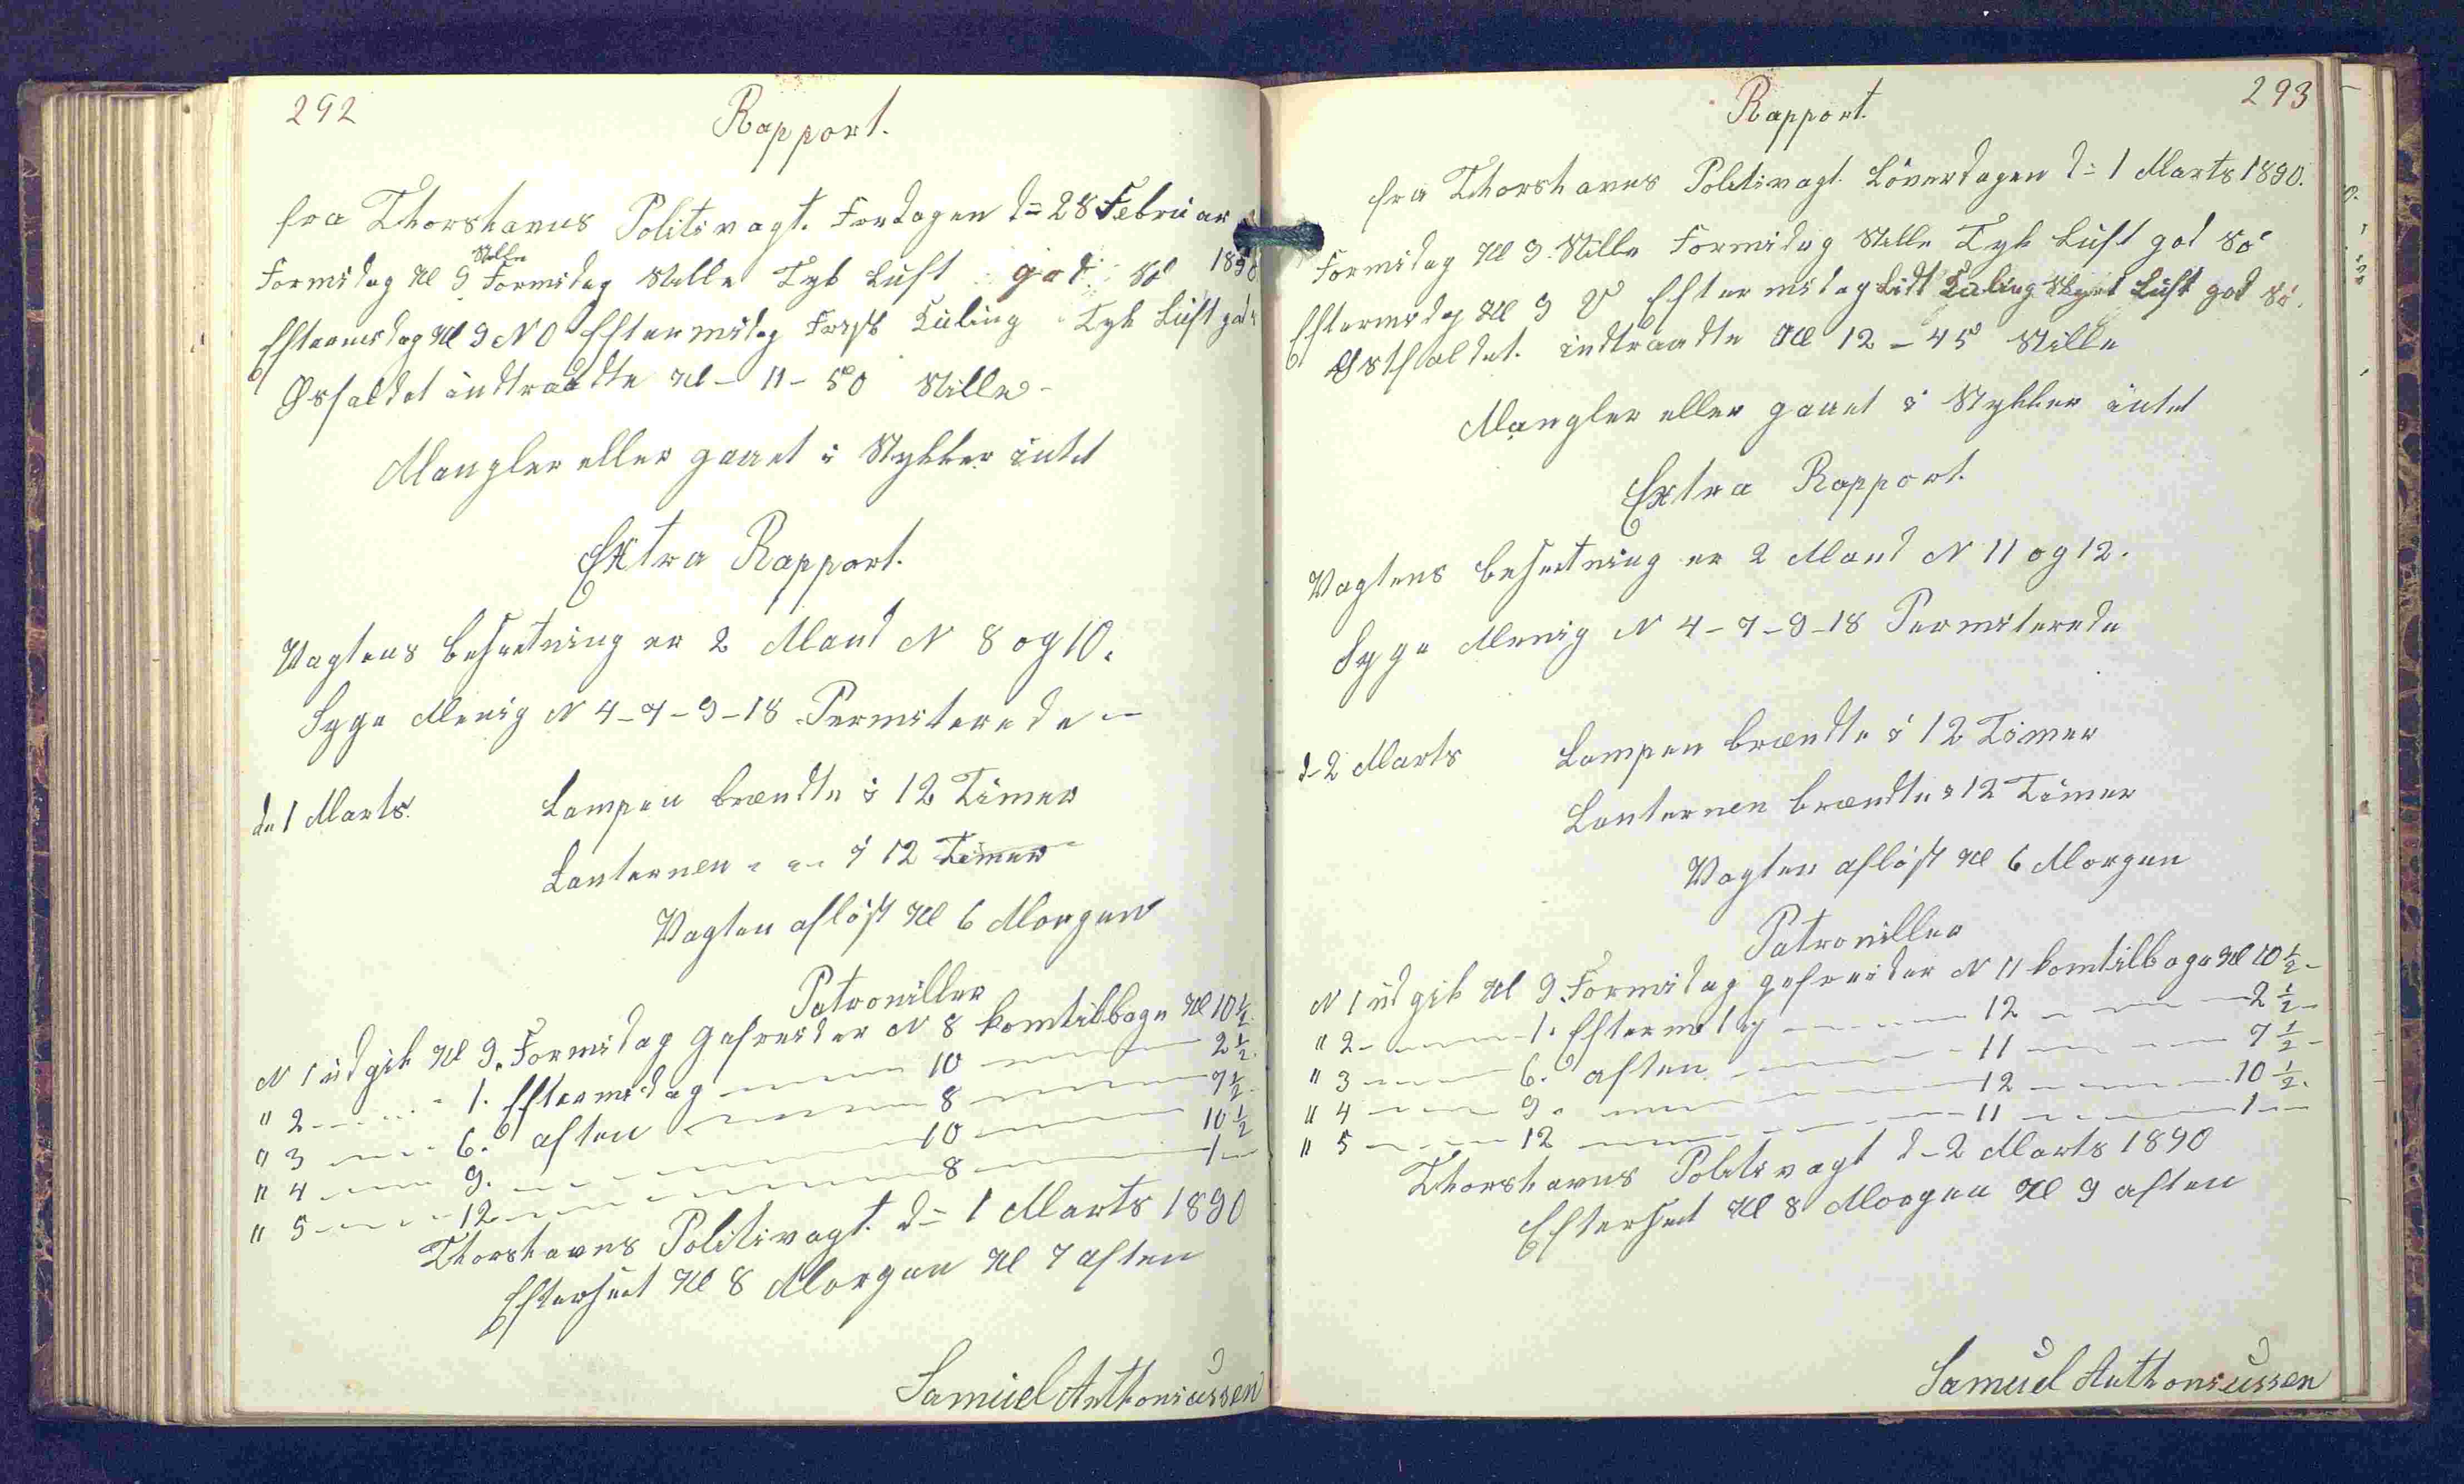 292
Rapport.
fra Thorshavns Politivagt. Fredagen d= 28 Februar
1890
Stille
Formidag Kl 9 Formidag Stille Tyk Luft god Sö
Eftermidag Kl 9 NO Eftermidag Frisk Kuling Tyk Luft god
Østfaldet indtraadte Kl - 11 - 50 Stille -
Mangler eller gaaet i Stykker intet
Extra Rapport.
Vagtens besætning er 2 Mand N 8 og 10.
Syge Menig N 4 - 7 - 9 - 18 Permiterede -
de 1 Marts. Lampen brændte i 12 Timer
Lanternen - - - i 12 Timer
Vagten aflöst Kl 6 Morgen
Patroniller
N 1 udgik Kl 9. Formidag Gefreider N 8 kom tilbage Kl 10 1/2.
" 2 - - - - 1. Eftermidag - - - - 10 - - - - 2 1/2.
" 3 - - - - 6. aften - - - - 8 - - - - 7 1/2.
" 4 - - - - 9. - - - - 10 - - - - 10 1/2
" 5 - - - - 12 - - - - 8 - - - - 1 -
Thorshavns Politivagt. d= 1 Marts 1890
Efterset Kl 8 Morgen Kl 7 aften
Samuel Anthoniussen
293
Rapport.
fra Thorshavns Politivagt. Löverdagen d= 1 Marts 1890.
Formidag Kl 9. Stille Formidag Stille Tyk Luft god Sö
Eftermidag Kl 9 V Eftermidag Lidt Kuling Skyet Luft god Sö.
Østfaldet. indtraadte Kl 12 - 45 Stille
Mangler eller gaaet i Stykker intet
Extra Rapport.
Vagtens besætning er 2 Mand N 11 og 12.
Syge Menig N 4 - 7 - 9 - 18 Permiterede
d- 2 Marts Lampen brændte i 12 Timer
Lanternen brændte i 12 Timer
Vagten aflöst Kl 6 Morgen
Patroniller
N 1 udgik Kl 9. Formidag gefreider N 11 kom tilbage Kl 10 1/2 -
" 2 - - - - 1. Eftermidag - - - - 12 - - - - 2 1/2 -
" 3 - - - - 6. aften - - - - 11 - - - - 7 1/2 -
" 4 - - - - 9. - - - - 12 - - - - 10 1/2.
" 5 - - - - 12 - - - - 11 - - - - 1 -
Thorshavns Politivagt d- 2 Marts 1890
Efterset Kl 8 Morgen Kl 9 aften
Samuel Anthoniussen